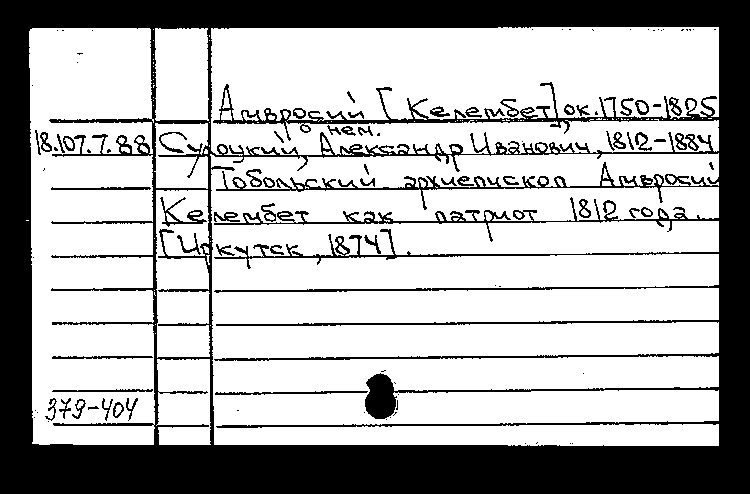 Амвросий [Келембет], ок. 1750-1825
о нем.
18.107.7.88 Сулоцкий, Александр Иванович, 1812-1884
Тобольский архиепископ Амвросий
Келембет как патриот 1812 года.
[Иркутск, 1874].
379-404